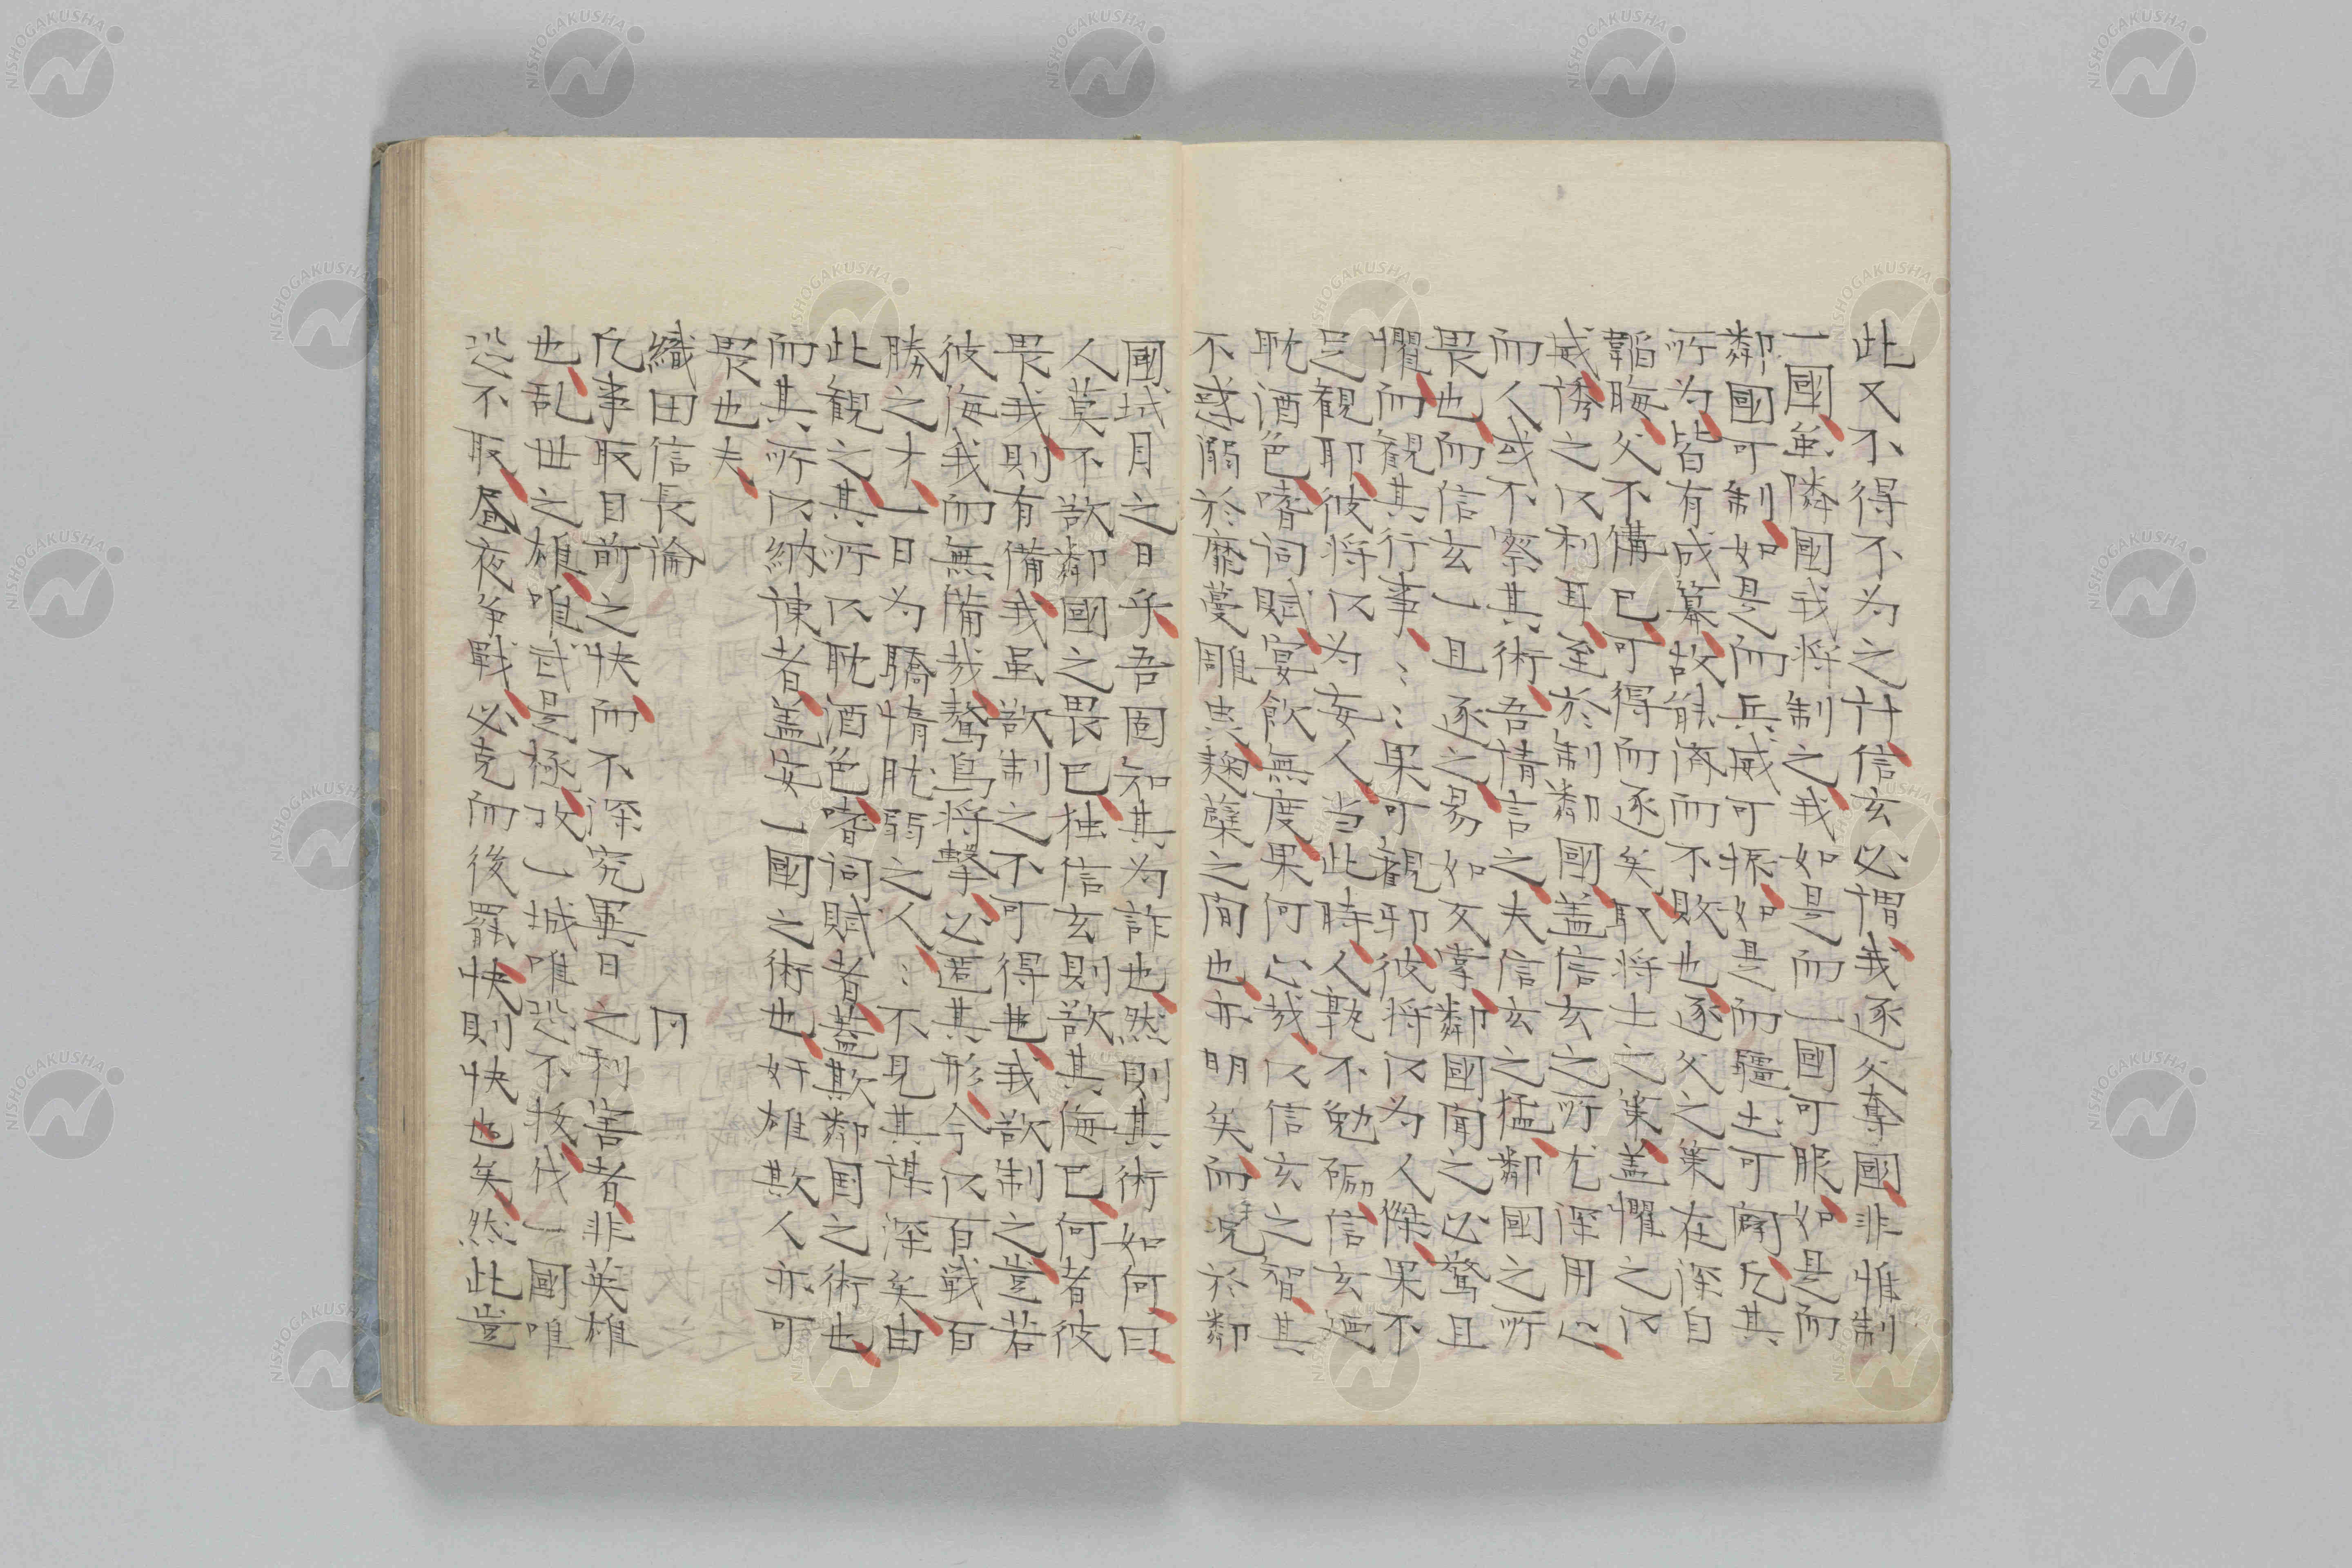 此又不得不为之計信玄必謂我逐父奪國非惟制
一國虽隣國我将制之我如是而一國可服如是而
鄰國可制如是而兵威可振如是而疆土可闢凡其
所为皆有成筭故能済而不敗也逐父之策在深自
韜晦父不備已可得而逐矣取将士之策盖懼之以
威誘之以利耳至於制鄰國盖信玄之所尤深用心
而人或不察其術吾情言之夫信玄之猛鄰國之所
畏也而信玄一旦逐之易如反掌鄰國聞之必驚且
懼而観其行事〻〻果可観耶彼将以为人傑果不
足観耶彼将以为妄人当此時人孰不勉礪信玄廼
耽酒色嗜詞賦宴飲無度果何心哉以信玄之智其
不惑溺於靡蔓雕虫麹蘖之间也亦明矣而況於鄰
國城月之日乎吾固知其为詐也然則其術如何曰
人莫不欲鄰國之畏已独信玄則欲其侮已何者彼
畏我則有備我虽欲制之不可得也我欲制之豈若
彼侮我而無備哉鷙鳥将撃必匿其形今以百戦百
勝之才一日为驕惰耽弱之人〻不見其謀深矣由
此観之其所以耽酒色嗜詞賦者蓋欺鄰国之術也
而其所以納諌者盖安一國之術也奸雄欺人亦可
畏也夫
織田信長論 同
凡事取目前之快而不深究異日之利害者非英雄
也乱世之雄唯武是極攻一城唯恐不抜伐一國唯
恐不取昼夜争戦必克而後罷快則快也矣然此豈